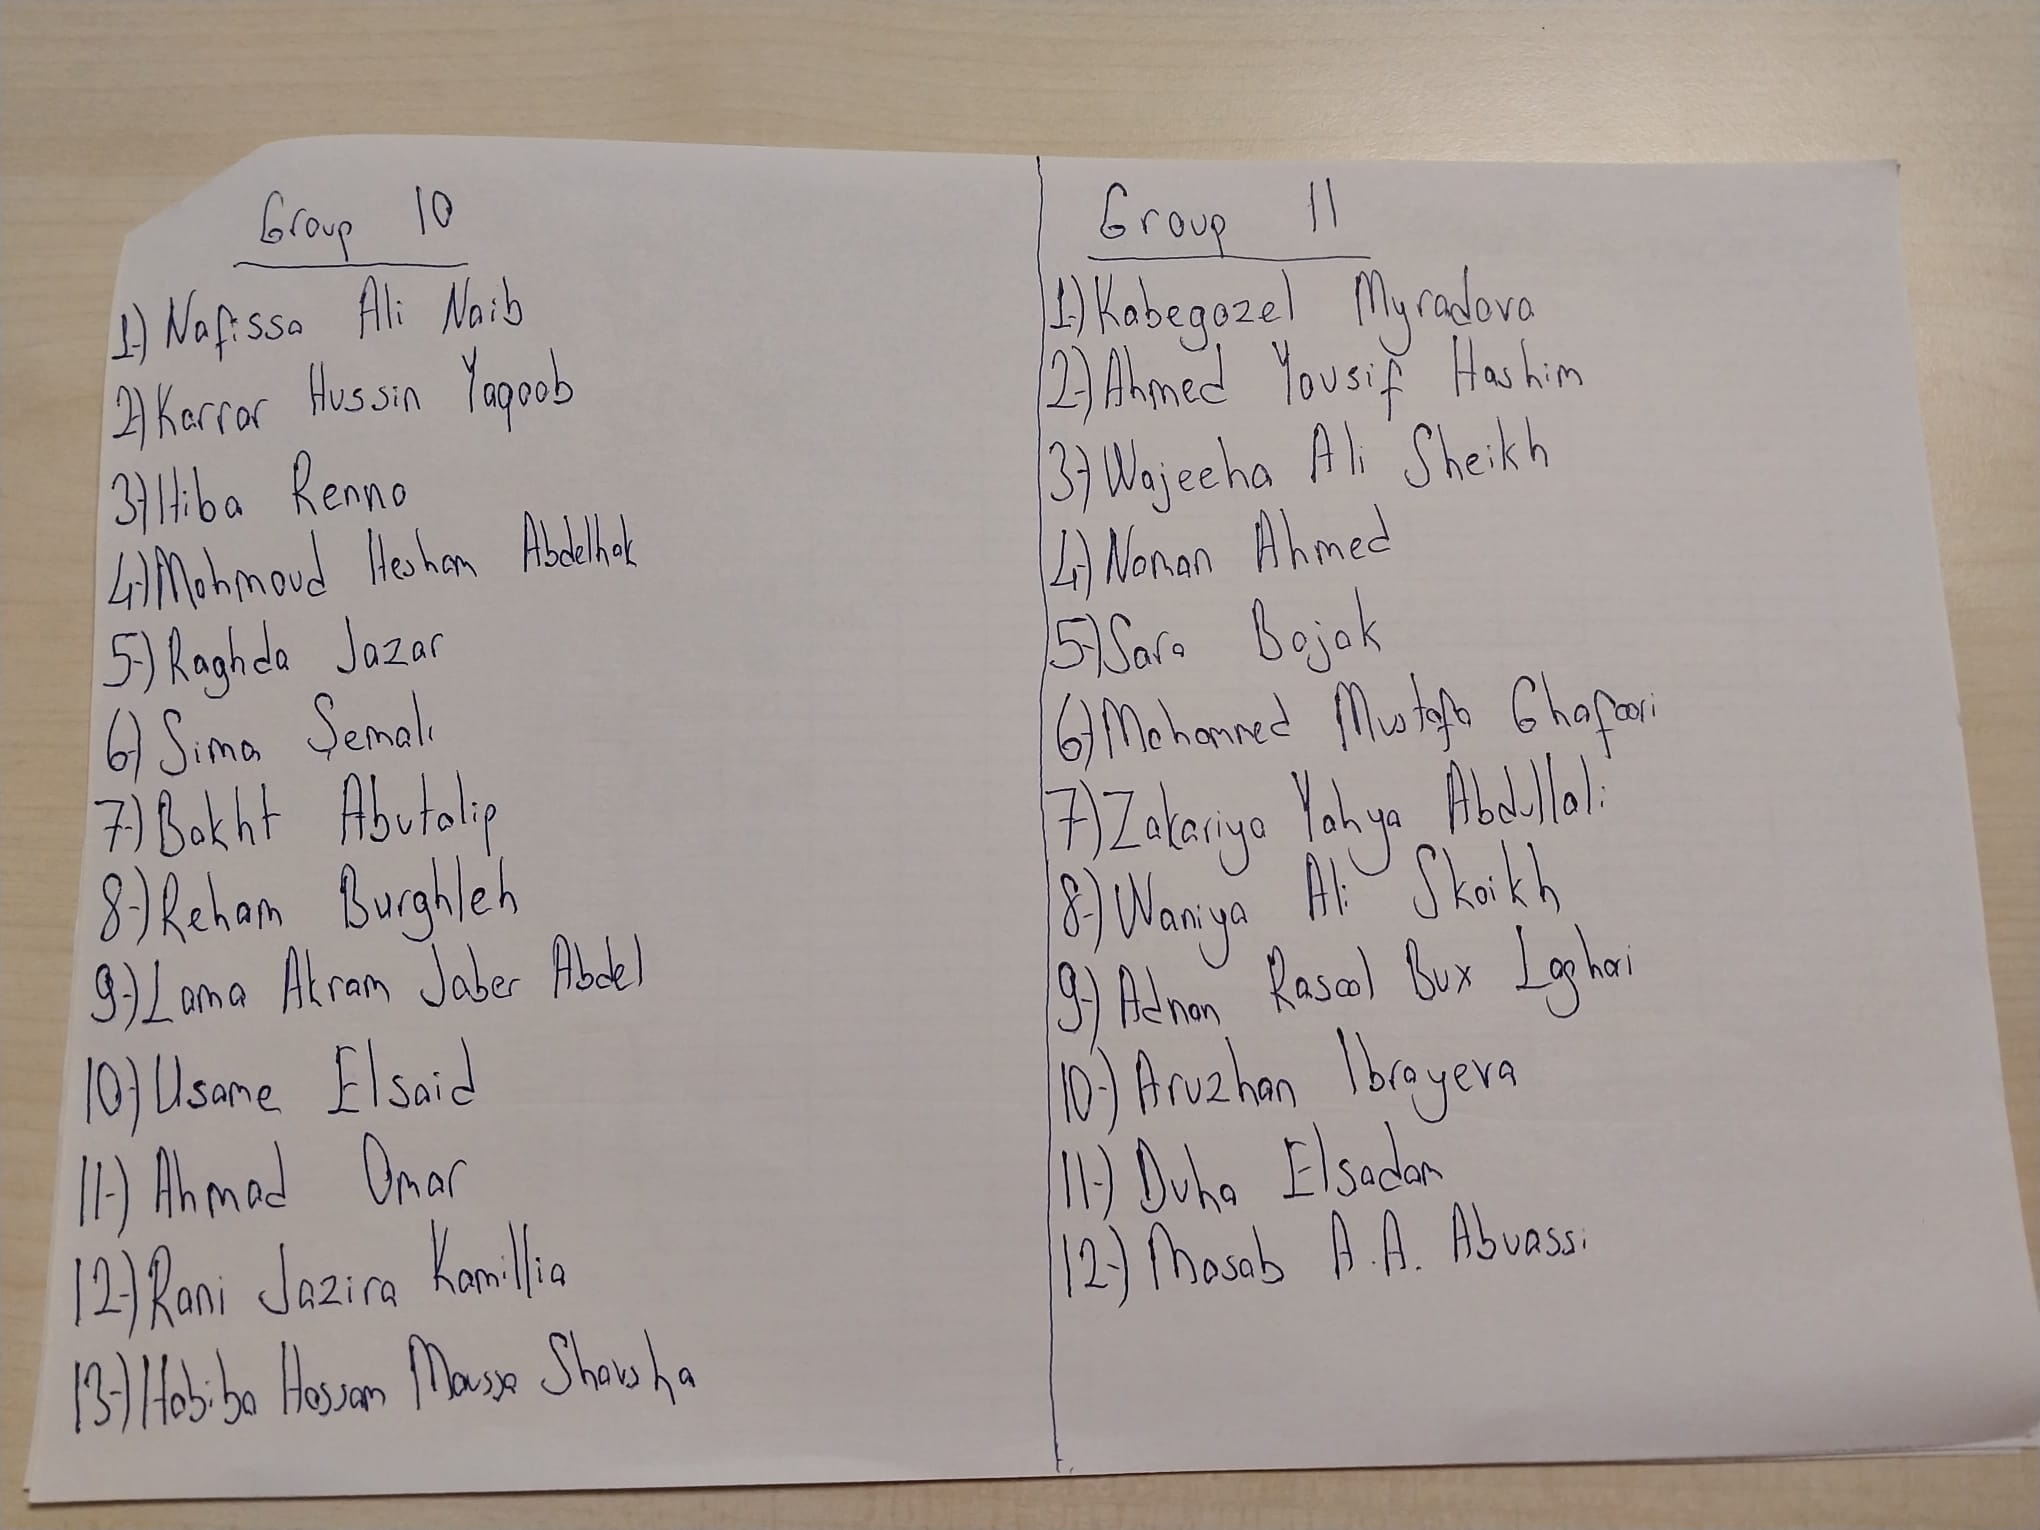 Group 10
1-) Nafissa Ali Naib
2-) Karrar Hussin Yaqoob
3-) Hiba Renno
4-) Mahmoud Hesham Abdelhak
5-) Raghda Jazar
6-) Sima Şemalı
7-) Bakht Abutalip
8-) Reham Burghleh
9-) Lama Akram Jaber Abdel
10-) Usame Elsaid
11-) Ahmad Omar
12-) Rani Jazira Kamillia
13-) Habiba Hossam Moussa Shousha
Group 11
1-) Kabegozel Myradova
2-) Ahmed Yousif Hashim
3-) Wajeeha Ali Sheikh
4-) Noman Ahmed
5-) Sara Bojak
6-) Mohammed Mustafa Ghafoori
7-) Zakariya Yahya Abdullali
8-) Waniya Ali Skaikh
9-) Adnan Rasool Bux Lgghari
10-) Aruzhan Ibrayeva
11-) Duha Elsadam
12-) Mosab A.A. Abuassi